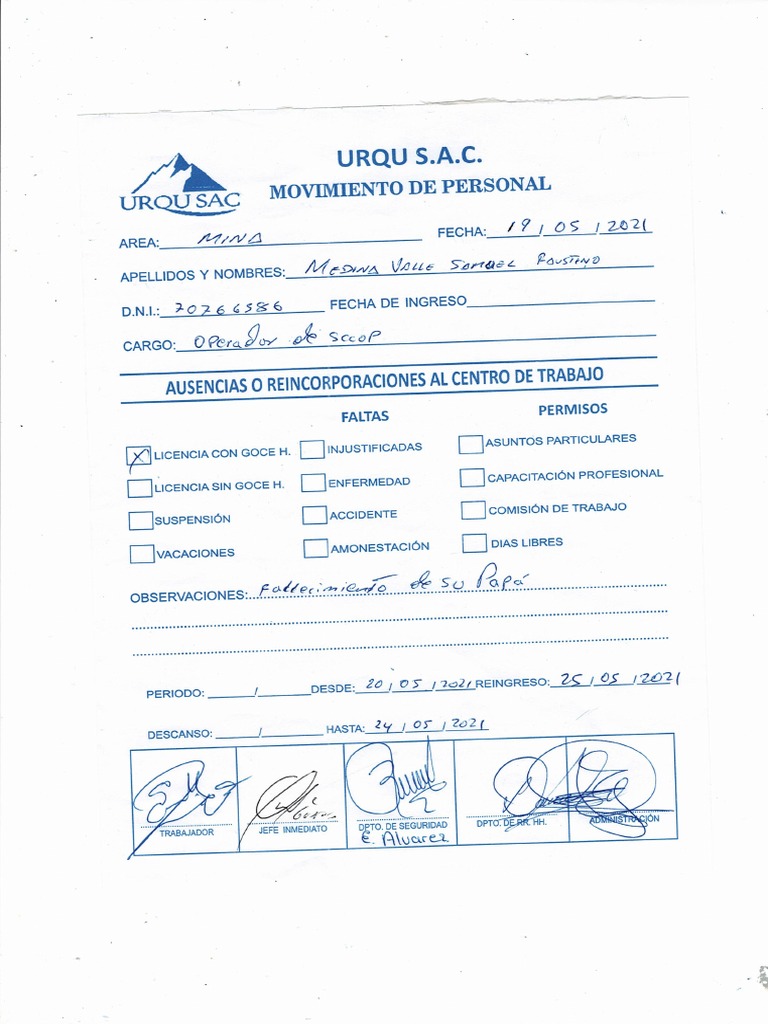 URQU S.A.C.
URQU SAC
MOVIMIENTO DE PERSONAL
AREA: MINA FECHA: 19 / 05 / 2021
APELLIDOS Y NOMBRES: MEDINA VALLE SAMUEL FAUSTINO
D.N.I.: 70266586 FECHA DE INGRESO
CARGO: Operador de scoop
AUSENCIAS O REINCORPORACIONES AL CENTRO DE TRABAJO
FALTAS PERMISOS
X LICENCIA CON GOCE H. INJUSTIFICADAS ASUNTOS PARTICULARES
LICENCIA SIN GOCE H. ENFERMEDAD CAPACITACIÓN PROFESIONAL
SUSPENSIÓN ACCIDENTE COMISIÓN DE TRABAJO
VACACIONES AMONESTACIÓN DIAS LIBRES
OBSERVACIONES: Fallecimiento de su Papá
PERIODO: / DESDE: 20 / 05 / 2021 REINGRESO: 25 / 05 / 2021
DESCANSO: / HASTA: 24 / 05 / 2021
TRABAJADOR JEFE INMEDIATO DPTO. DE SEGURIDAD DPTO. DE RR. HH. ADMINISTRACIÓN
E. Alvarez